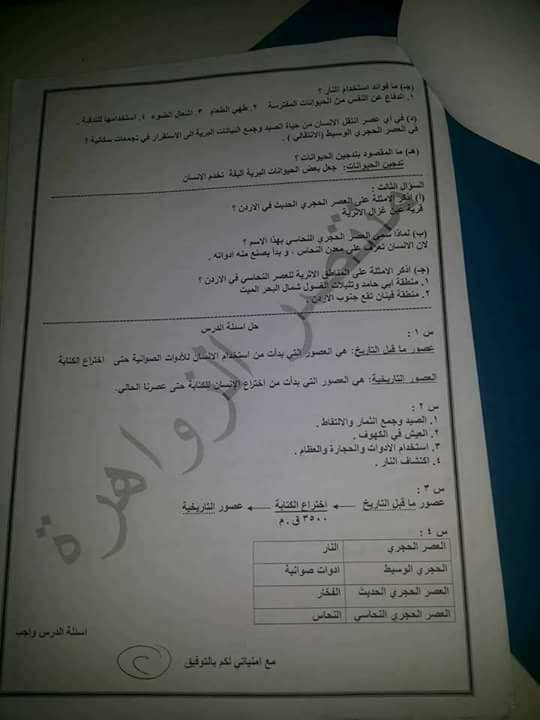 (جـ) ما فوائد استخدام النار ؟
١. الدفاع عن النفس من الحيوانات المفترسة ٢. طهي الطعام ٣. اشعال الضوء ٤. استخدامها للتدفئة .
(د) في اي عصر انتقل الانسان من حياة الصيد وجمع النباتات البرية الى الاستقرار في تجمعات سكانية ؟
في العصر الحجري الوسيط (الانتقالي) .
(هـ) ما المقصود بتدجين الحيوانات ؟
تدجين الحيوانات: جعل بعض الحيوانات البرية أليفة تخدم الإنسان
السؤال الثالث :
(أ) اذكر الامثلة على العصر الحجري الحديث في الاردن ؟
قرية عين غزال الاثرية
(ب) لماذا سمي العصر الحجري النحاسي بهذا الاسم ؟
لان الانسان تعرف على معدن النحاس ، و بدأ يصنع منه ادواته .
(جـ) اذكر الامثلة على المناطق الاثرية للعصر النحاسي في الاردن ؟
١. منطقة ابي حامد وتليلات الغسول شمال البحر الميت
٢. منطقة فينان تقع جنوب الاردن .
حل اسئلة الدرس
س ١ :
عصور ما قبل التاريخ: هي العصور التي بدأت من استخدام الإنسان للأدوات الصوانية حتى اختراع الكتابة
العصور التاريخية: هي العصور التي بدأت من اختراع الإنسان للكتابة حتى عصرنا الحالي.
س ٢ :
١. الصيد وجمع الثمار والالتقاط .
٢. العيش في الكهوف .
٣. استخدام الادوات والحجارة والعظام .
٤. اكتشاف النار .
س ٣ :
عصور ما قبل التاريخ ← اختراع الكتابة ← عصور التاريخية
٣٥٠٠ ق . م
س ٤ :
العصر الحجري النار
الحجري الوسيط ادوات صوانية
العصر الحجري الحديث الفخار
العصر الحجري النحاسي النحاس
اسئلة الدرس واجب
مع امنياتي لكم بالتوفيق
٢
منتصر الزواهرة